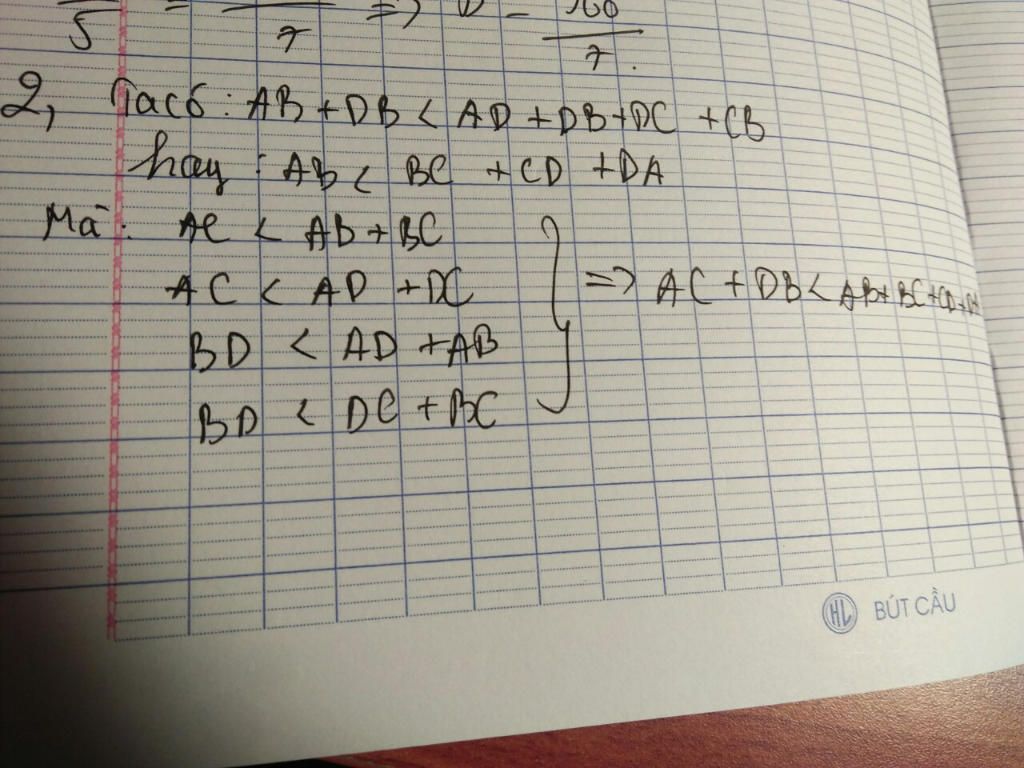 5 = 7 => = 360
7.
2, Ta có: AB + DB < AD + DB + DC + CB
hay: AB < BC + CD + DA
Mà: AC < AB + BC
AC < AD + DC => AC + DB < AB + BC + CD + DA
BD < AD + AB
BD < DC + BC
HL BÚT CẦU